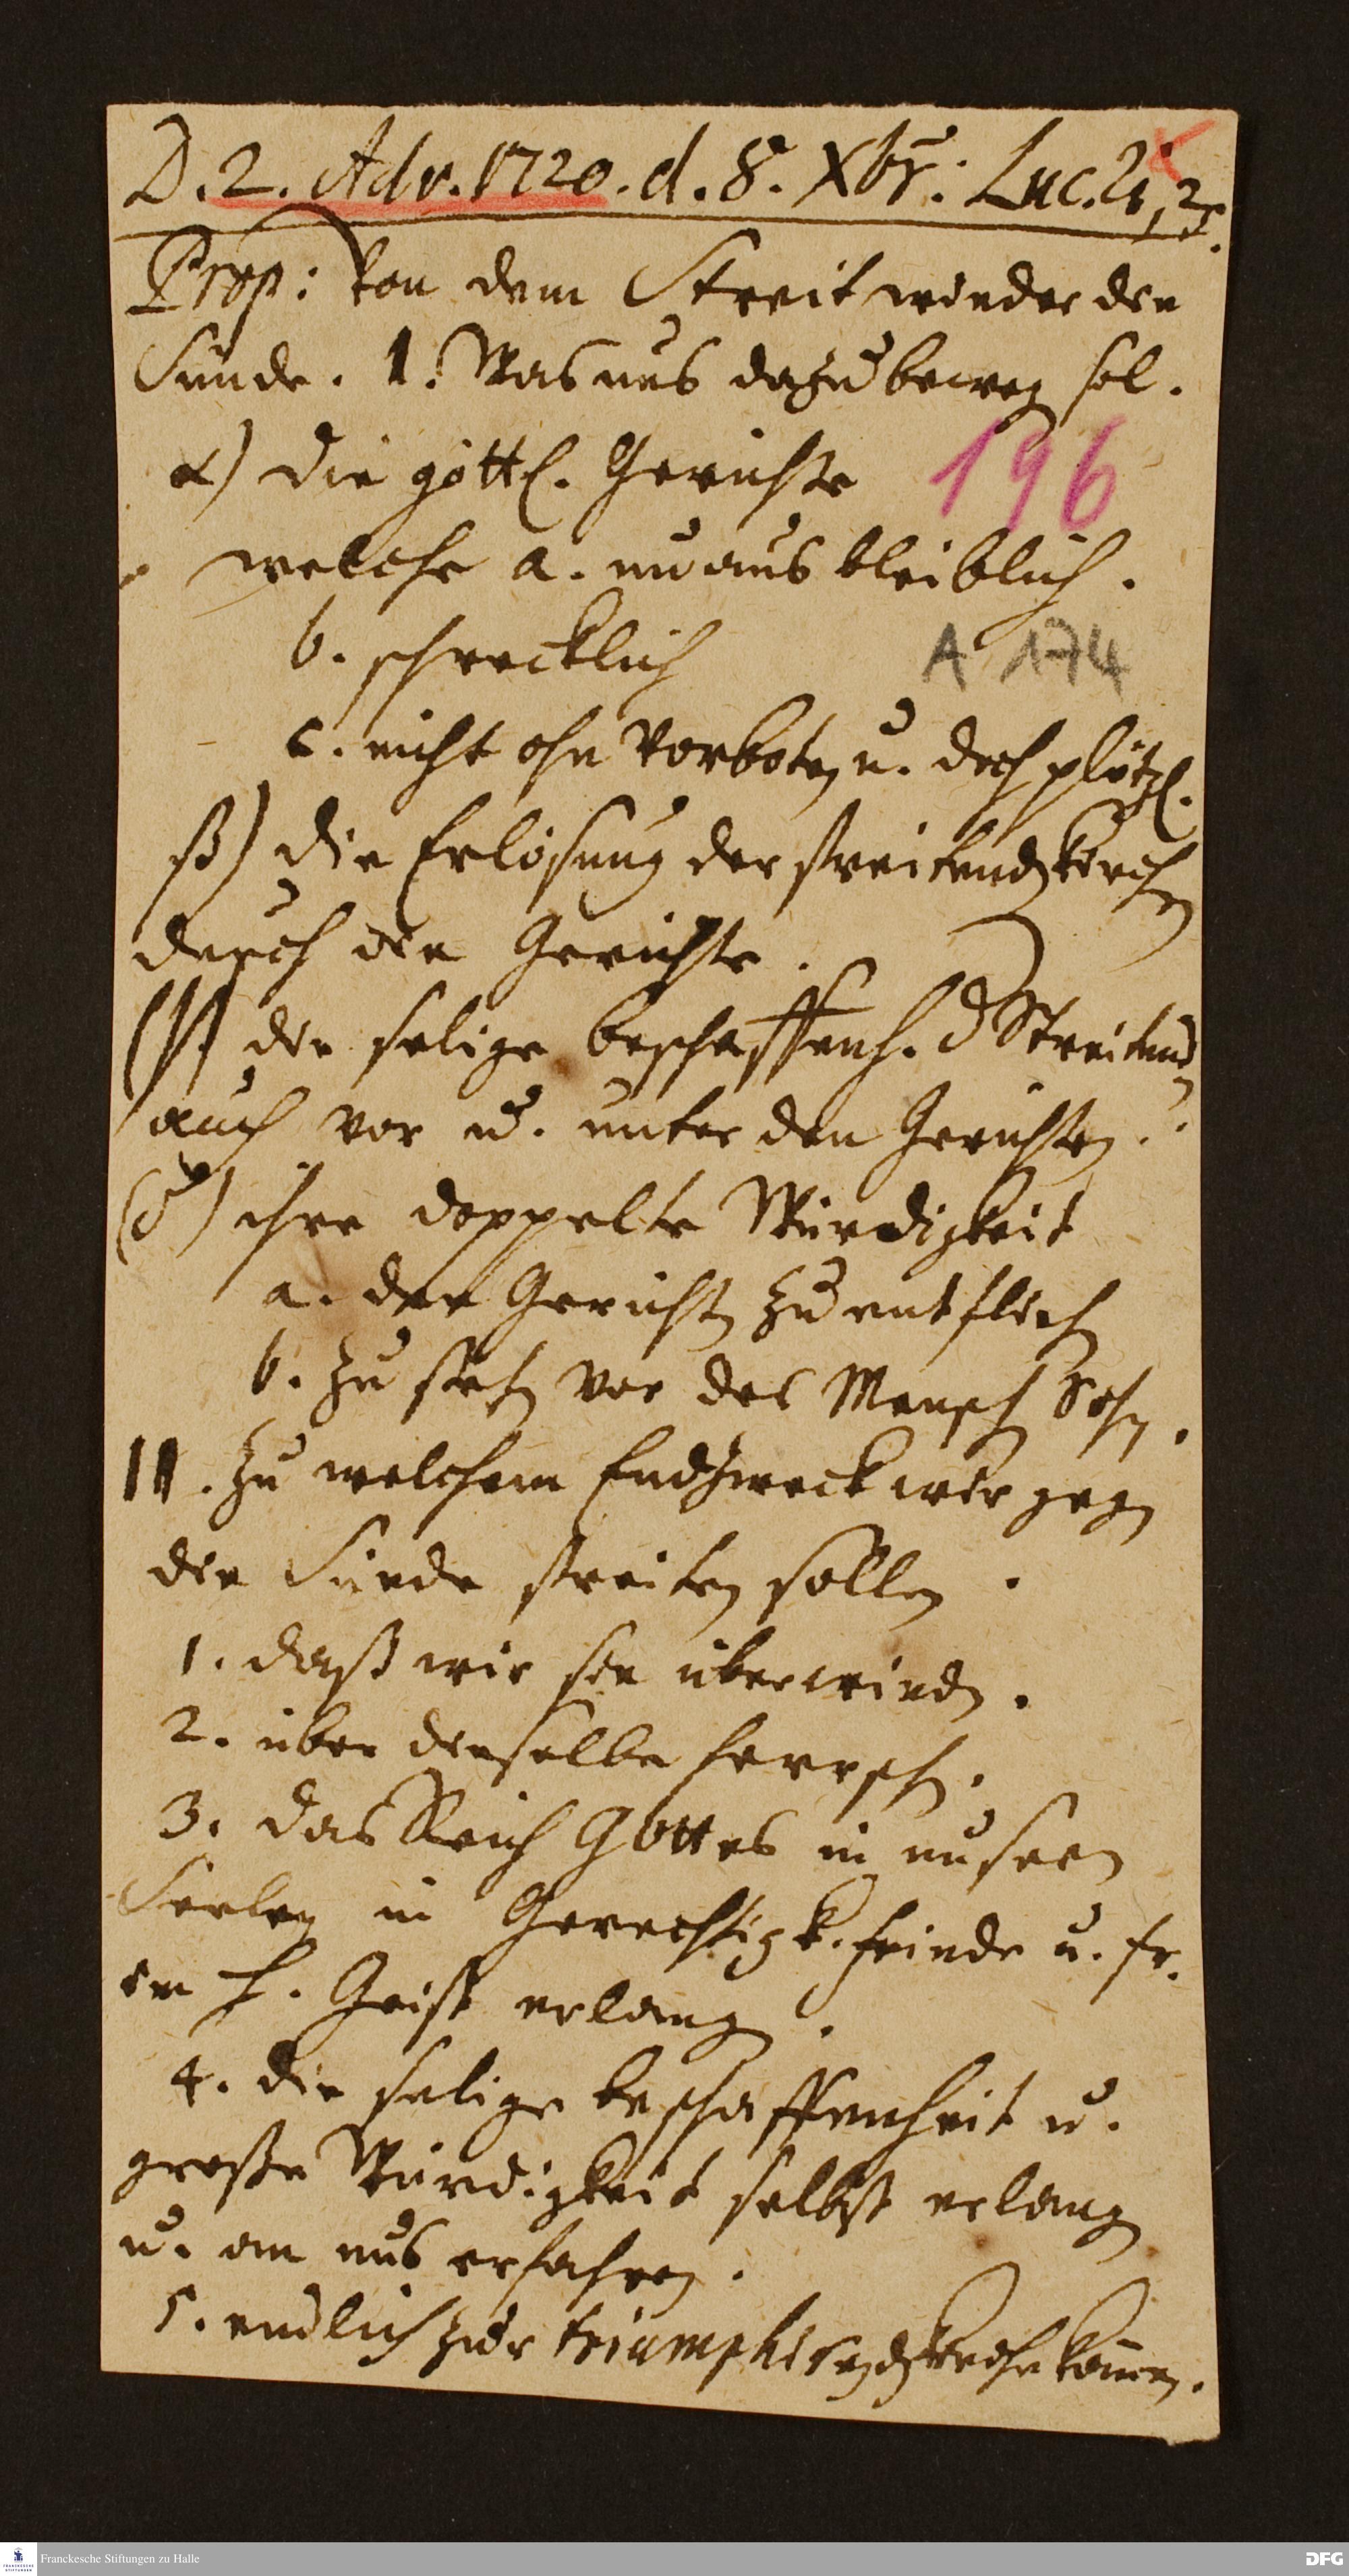 D. 2. Adv. 1720. d. 8. Xbr: Luc. 21, 25.
Prop: Von dem Streit wieder die
Sünde. 1. Was uns dazu beweg sol.
α) die göttl. Gerichte
196
welche a. unausbleiblich.
b. schrecklich
A 174
c. nicht ohn Vorboten u. doch plötzl.
β) die Erlösung der streitenden Kirchen
durch die Gerichte.
(γ) die selige beschaffenh. d Streitend
auch vor u. unter den Gerichten.
(δ) ihre doppelte Würdigkeit
a. den Gerichten zu entfliehen
b. zu stehen vor des Menschen Sohn.
II. Zu welchem Endzweck wir gegen
die Sünde streiten sollen.
1. daß wir sie überwinden.
2. über dieselbe herrschen.
3. das Reich Gottes in unseren
Seelen in Gerechtigk. Friede u. fr.
im h. Geist erlangen.
4. die selige beschaffenheit u.
große Würdigkeit selbst erlangen
u. an uns erfahren.
5. endlich zur triumphirenden Kirche kommen.
Franckesche Stiftungen zu Halle
DFG